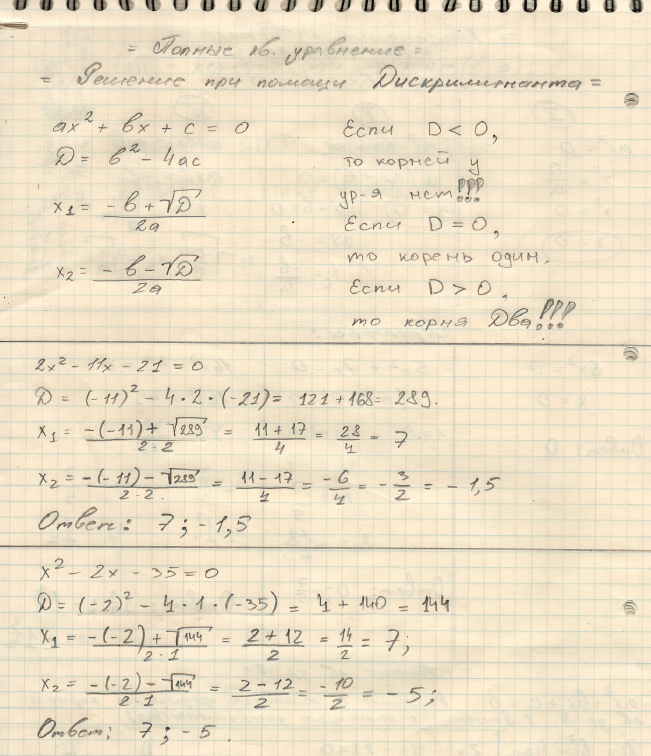 = Полные кв. уравнение =
= Решение при помощи Дискриминанта =
ax² + bx + c = 0
D = b² - 4ac
x₁ = (-b + √D)/2a
x₂ = (-b - √D)/2a
Если D < 0,
то корней у
ур-я нет!!!
Если D = 0,
то корень один.
Если D > 0,
то корня Два!!!
2x² - 11x - 21 = 0
D = (-11)² - 4 · 2 · (-21) = 121 + 168 = 289.
x₁ = (-(-11) + √289)/(2 · 2) = (11 + 17)/4 = 28/4 = 7
x₂ = (-(-11) - √289)/(2 · 2) = (11 - 17)/4 = -6/4 = -3/2 = -1,5
Ответ: 7 ; -1,5
x² - 2x - 35 = 0
D = (-2)² - 4 · 1 · (-35) = 4 + 140 = 144
x₁ = (-(-2) + √144)/(2 · 1) = (2 + 12)/2 = 14/2 = 7;
x₂ = (-(-2) - √144)/(2 · 1) = (2 - 12)/2 = -10/2 = -5;
Ответ: 7 ; -5.